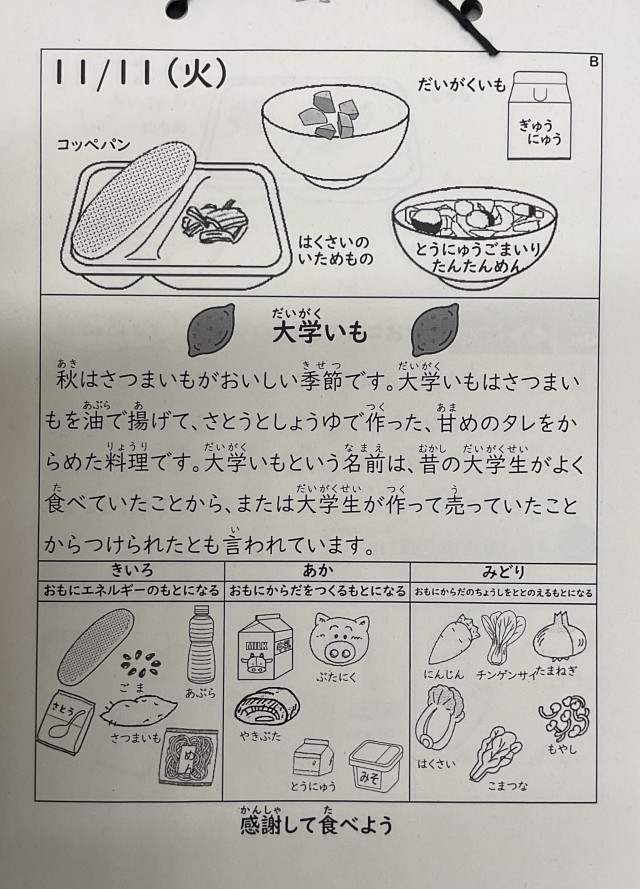 B
11/11(火)
だいがくいも
ぎゅう
にゅう
コッペパン
はくさいの
いためもの
とうにゅうごまいり
たんたんめん
だいがく
大学いも
あき きせつ だいがく
秋はさつまいもがおいしい季節です。大学いもはさつまい
あぶら あ つく あま
もを油で揚げて、さとうとしょうゆで作った、甘めのタレをか
りょうり だいがく なまえ むかし だいがくせい
らめた料理です。大学いもという名前は、昔の大学生がよく
た だいがくせい つく う
食べていたことから、または大学生が作って売っていたこと
い
からつけられたとも言われています。
きいろ
おもにエネルギーのもとになる
ごま
あぶら
さとう
さつまいも
めん
あか
おもにからだをつくるもとになる
MILK
ぶたにく
やきぶた
とうにゅう
みそ
みどり
おもにからだのちょうしをととのえるもとになる
にんじん
チンゲンサイ
たまねぎ
はくさい
もやし
こまつな
かんしゃ た
感謝して食べよう